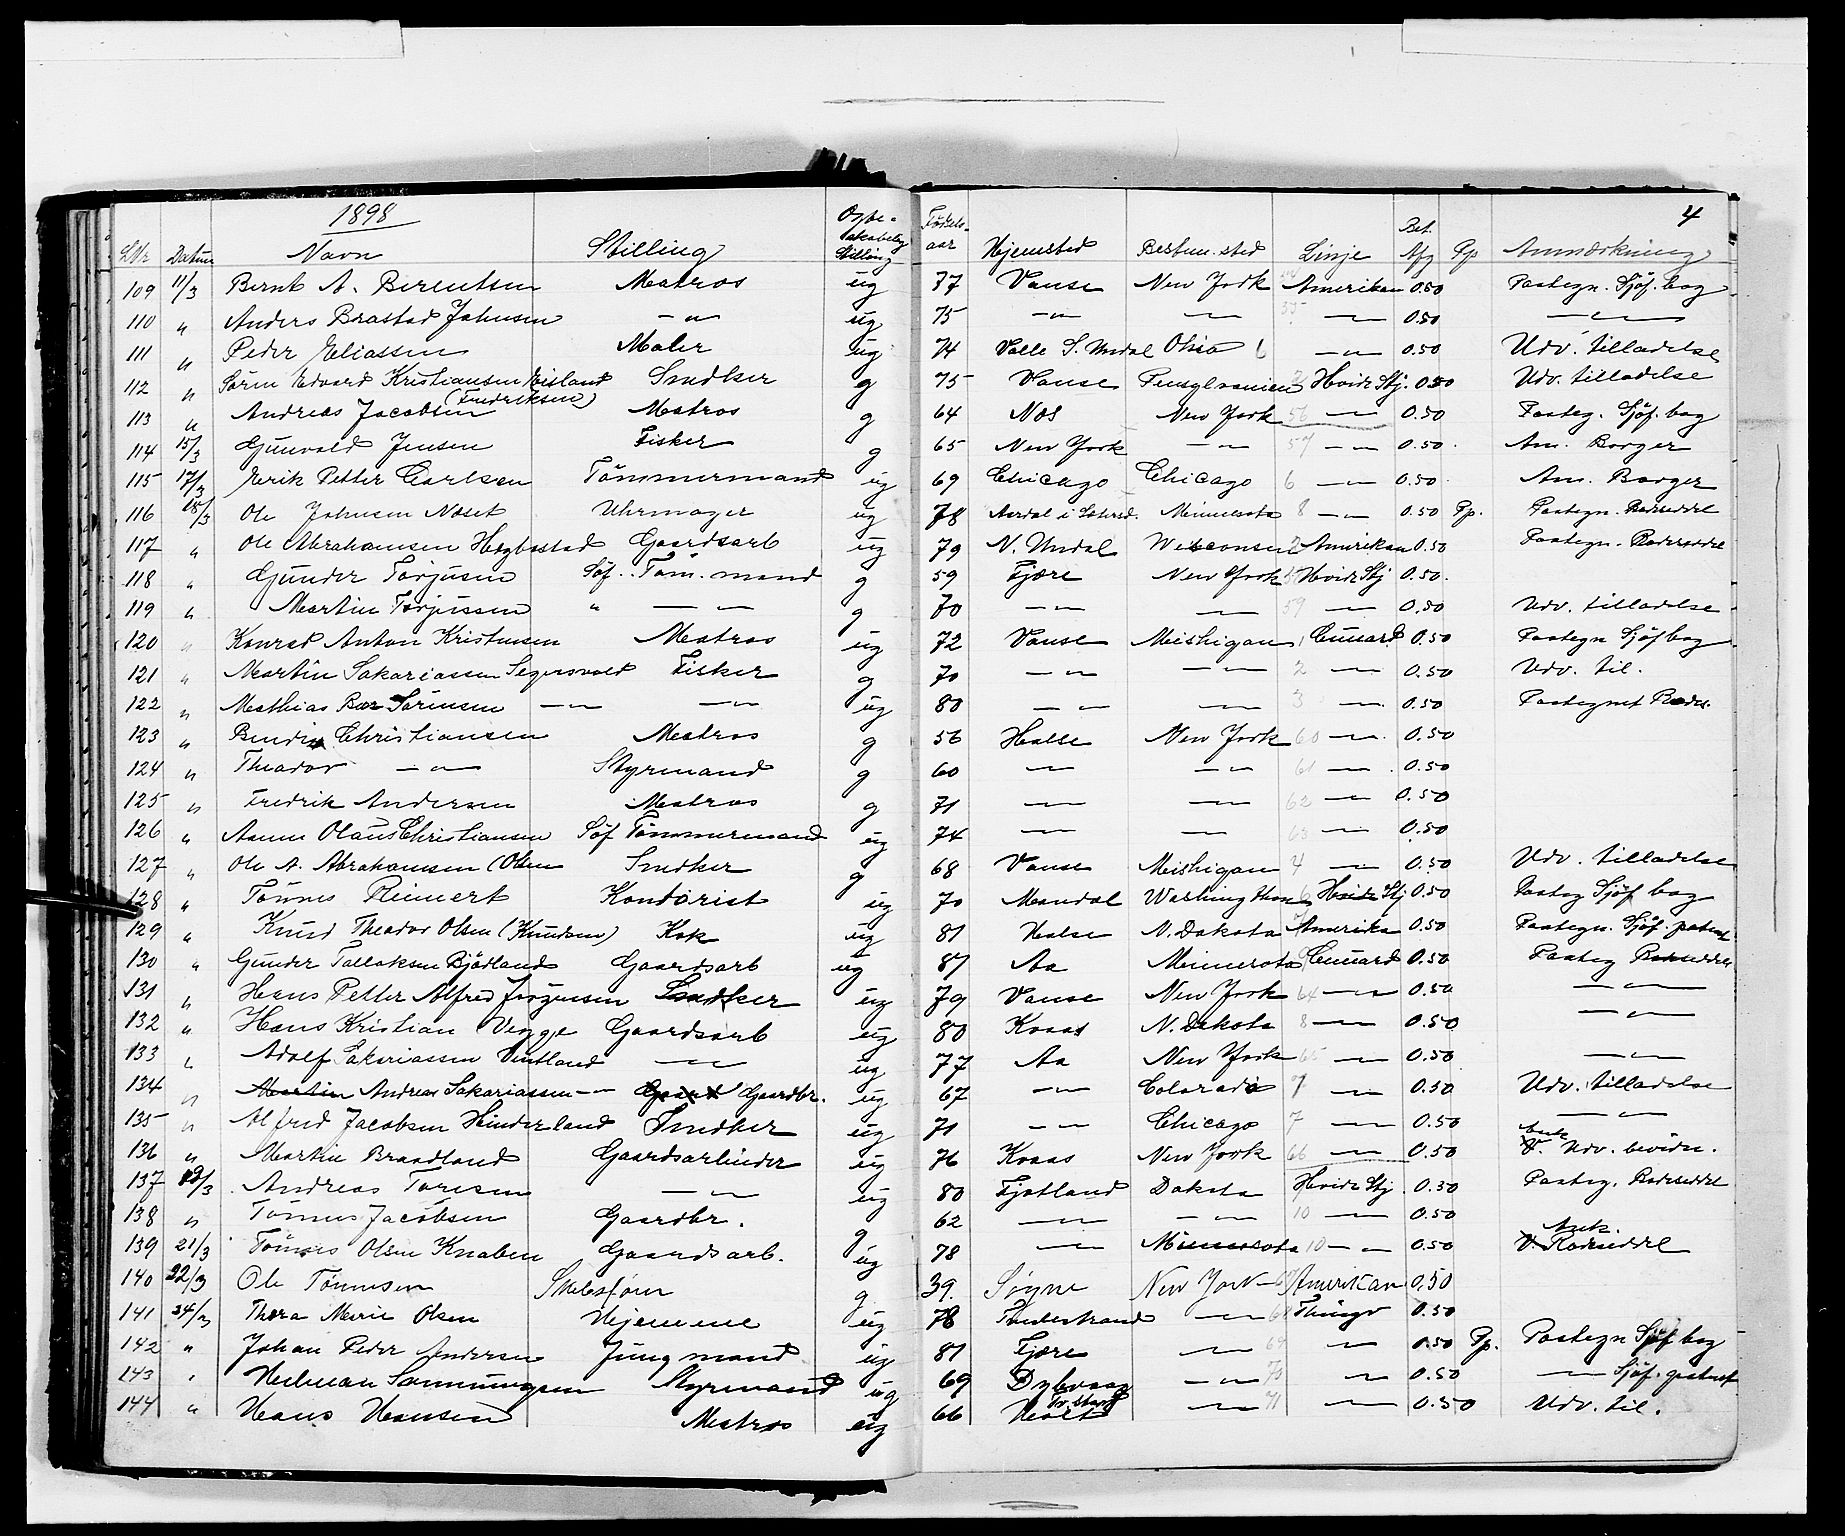 1898 4
LNr Datum Navn Stilling Fødselsaar Hjemsted Bestem.sted Linje Bet. Afg Pp Anmærkning
109 11/3 Bernt A. Berentsen Matros ug 77 Vanse New York Amerikan 0.50 Paategn. Sjöf. bog
110 " Anders Brastad Johnsen —"— ug 75 —"— —"— —"— 0.50 —"—
111 " Peder Eliassen Maler ug 74 Valle S. Undal Ohio 6 —"— 0.50 Udv. tilladelse
112 " Sören Edvard Kristiansen Eisland Snedker g 75 Vanse Pensylvanien Hvide Stj. 0.50 Udv. tilladelse
(Fredriksen)
113 " Andreas Jacobsen Matros g 64 Næs New York 56 —"— 0.50 Paateg. Sjöf. bog
114 15/3 Gunvald Jensen Fisker g 65 New York —"— 57 —"— 0.50 Am. Borger
115 17/3 Eerik Petter Carlsen Tömmermand ug 69 Chicago Chicago 6 —"— 0.50 Am. Borger
116 18/3 Ole Johnsen Noset Uhrmager ug 78 Aardal i Sætersd. Minnesota 8 —"— 0.50 Pp. Paategn. Rodeseddel
117 " Ole Abrahamsen Hægbostad Gaardsarb ug 79 N. Undal Wisconsin 2 Amerikan 0.50 Paategn. Rodeseddel
118 " Gunder Torjusen Söf. Töm. mand g 59 Fjære New York Hvide Stj 0.50
119 " Martin Torjussen " —"— g 70 —"— —"— 59 —"— 0.50 Udv. tilladelse
120 " Konrad Anton Kristensen Matros ug 72 Vanse Mishigan 1 Cunard 0.50 Paategn Sjöf bog
121 " Martin Sakariassen Segersvold Fisker g 70 —"— —"— 2 —"— 0.50 Udv. til.
122 " Mathias Bær Sörensen —"— —"— ug 80 —"— —"— 3 —"— 0.50 Paategnet Rodes.
123 " Bendix Christiansen Matros g 56 Halse New York 60 —"— 0.50
124 " Theodor —"— Styrmand g 60 —"— —"— 61 —"— 0.50
125 " Fredrik Andersen Matros g 71 —"— —"— 62 —"— 0.50
126 " Aanen Olaus Christiansen Söf Tömmermand ug 74 —"— —"— 63 —"— 0.50
127 " Ole A. Abrahamsen (Olsen Snedker g 68 Vanse Mishigan 4 —"— 0.50 Udv. tilladelse
128 " Tönnes Reinert Kontorist ug 70 Mandal Washington 6 Hvide Stj 0.50 Paateg Sjöf bog
129 " Knud Theodor Olsen (Knudsen) Kok ug 81 Halse N. Dakota Amerika 0.50 Paategn. Sjöf. patent
130 " Gunder Tallaksen Bjödland Gaardsarb ug 87 Aa Minnesota Cunard 0.50 Paateg Rodeseddel
131 " Hans Petter Alfred Jörgensen Snedker ug 79 Vanse New York 64 —"— 0.50 —"—
132 " Hans Kristian Vegge Gaardsarb ug 80 Kvaas N. Dakota 8 —"— 0.50 —"—
133 " Adolf Sakariassen Vintland —"— ug 77 Aa New York 65 —"— 0.50 —"—
134 " Martin Andreas Sakariassen —"— Gaard Gaardbr. ug 67 —"— Colorado 7 —"— 0.50 Udv. tilladelse
135 " Alfred Jacobsen Hinderland Snedker ug 71 —"— Chicago 7 —"— 0.50 —"—
136 " Martin Braadland Gaardsarbeider ug 76 Kvaas New York 66 —"— 0.50 Udv. bevidn.
137 19/3 Andreas Toresen —"— ug 80 Fjotland Dakota Hvide Stj. 0.50 Paateg. Rodeseddel
138 " Tönnes Jacobsen Gaardbr. g 62 —"— —"— 10 —"— 0.50
139 21/3 Tönnes Olsen Knaben Gaardsarb. ug 78 —"— Minnesota 10 —"— 0.50 Rodeseddel
140 22/3 Ole Tönnesen Skibsförer g 39. Søgne New York Amerikan 0.50
141 24/3 Thora Marie Olsen Hjemme ug 78 Tvedestrand —"— Thingv 0.50
142 " Johan Peder Andersen Jungmand ug 81 Fjære —"— 69 —"— 0.50 Pp. Paategn Sjöf bog
143 " Herman Sønnungsen Styrmand ug 69 Dybvaag —"— 70 —"— 0.50 —"— Sjöf. patent
144 " Hans Hansen Matros ug 66 Holt Tv.strand —"— 71 —"— 0.50 Udv. til.